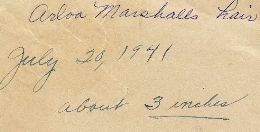 Arloa Marshalls hair
July 20, 1941
about 3 inches